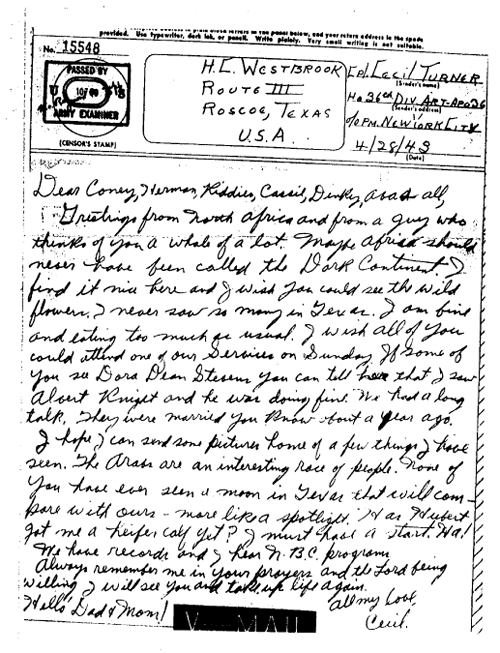 provided. Use typewriter, dark ink, or pencil. Write plainly. Very small writing is not suitable.
No. 15548
PASSED BY
U S
ARMY EXAMINER
(CENSOR'S STAMP)
H.C. WESTBROOK
ROUTE III
ROSCOE, TEXAS
U.S.A.
CPL CECIL TURNER
(Sender's name)
HQ 36th DIV ART-APO 36
(Sender's address)
c/o P.M. NEW YORK CITY
4/28/43
(Date)
Dear Coney, Herman, Kiddies, Cassie, Dinky, and all,
Greetings from North Africa and from a guy who
thinks of you a whole of a lot. Maybe Africa should
never have been called the Dark Continent. I
find it nice here and I wish you could see the wild
flowers. I never saw so many in Texas. I am fine
and eating too much as usual. I wish all of you
could attend one of our Services on Sunday. If some of
you see Dora Dean Stevens you can tell her that I saw
Albert Knight and he was doing fine. We had a long
talk. They were married you know about a year ago.
I hope I can send some pictures home of a few things I have
seen. The Arabs are an interesting race of people. None of
you have ever seen a moon in Texas that will com-
pare with ours - more like a spotlight. Has Hubert
got me a heifer calf yet? I must have a start. Ha!
We have records and I hear N.B.C. program
Always remember me in your prayers and the Lord being
willing I will see you and take up life again.
Hello Dad & Mom!
All my love,
Cecil.
V-MAIL